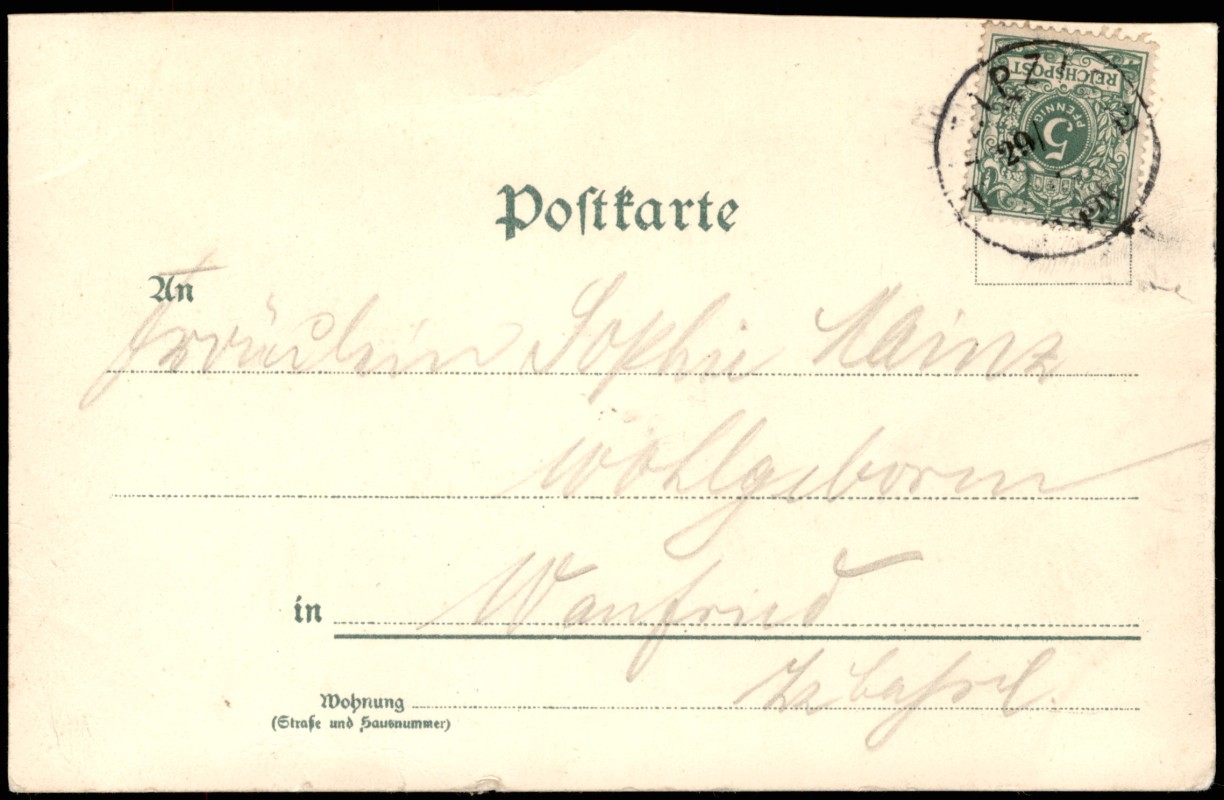 REICHSPOST
5
PFENNIG
29
Postkarte
An
Fräulein Sophie Mainz
Wohlgeboren
in Wanfried
Wohnung
(Straße und Hausnummer)